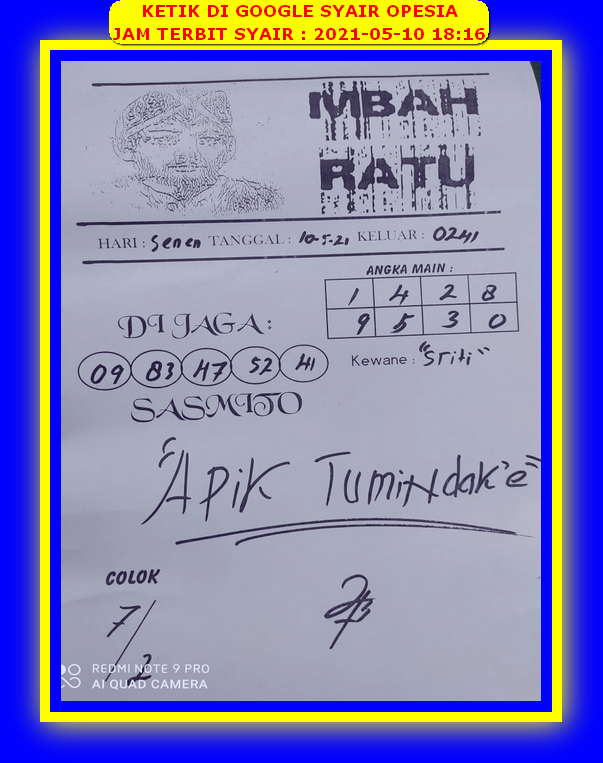 KETIK DI GOOGLE SYAIR OPESIA
JAM TERBIT SYAIR : 2021-05-10 18:16
MBAH
RATU
HARI : Senen TANGGAL : 10-5-21 KELUAR : 0241
ANGKA MAIN :
1 4 2 8
9 5 3 0
DI JAGA :
09 83 47 52 41
Kewane : "Sriti"
SASMITO
"APIK TUMINDAK'e"
COLOK
7/2
REDMI NOTE 9 PRO
AI QUAD CAMERA